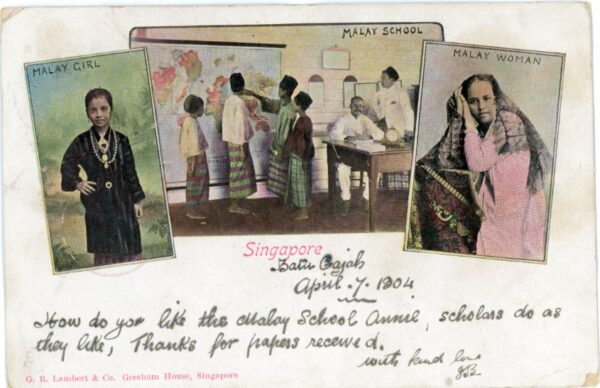 MALAY GIRL
MALAY SCHOOL
MALAY WOMAN
Singapore
Batu Gajah
April. 7. 1904
How do you like the Malay School Annie, scholars do as
they like, Thanks for papers received.
with kind love
G. R. Lambert & Co. Gresham House, Singapore